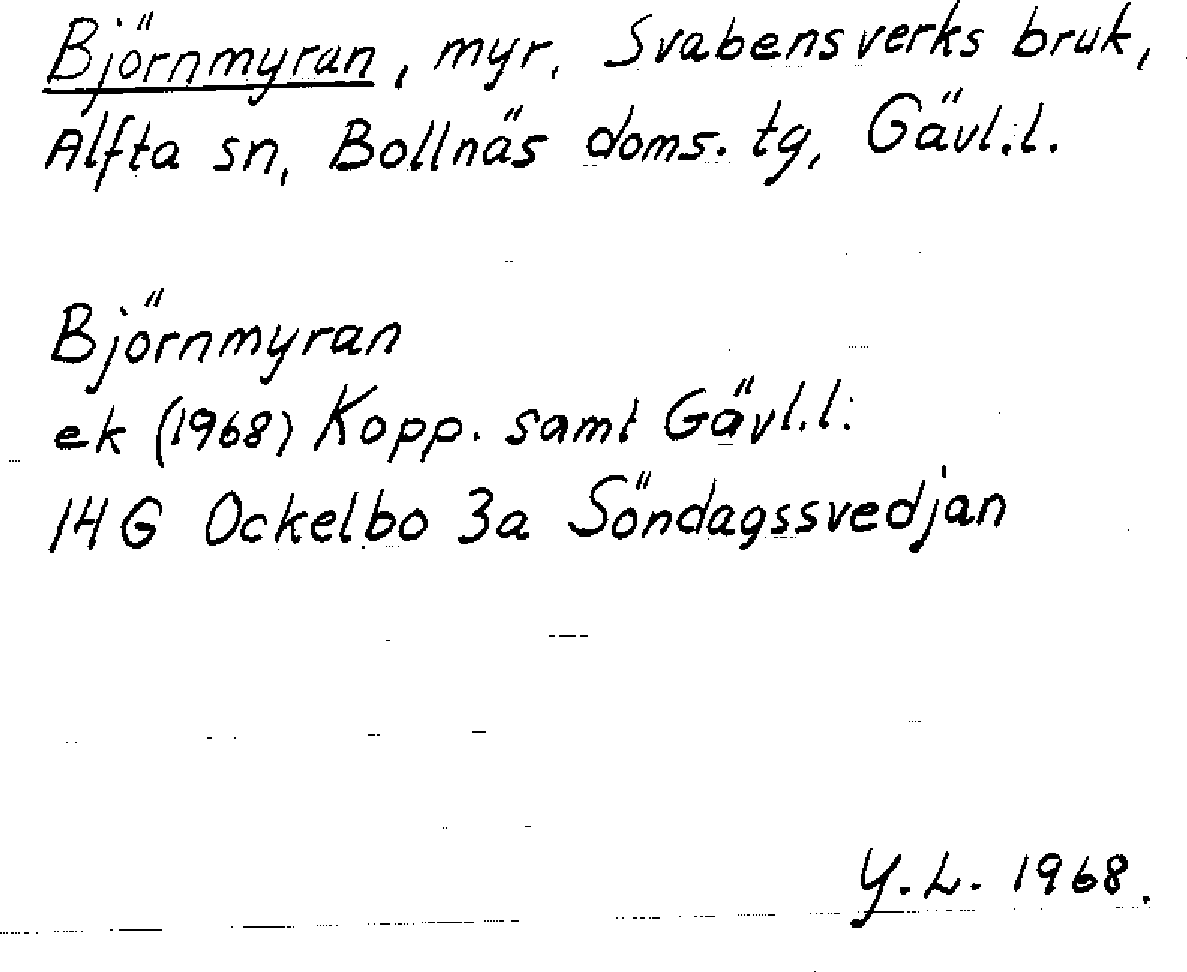 Björnmyran, myr, Svabensverks bruk,
Alfta sn, Bollnäs doms. tg, Gävl.l.
Björnmyran
ek (1968) Kopp. samt Gävl.l:
14 G Ockelbo 3a Söndagssvedjan
Y.L. 1968.